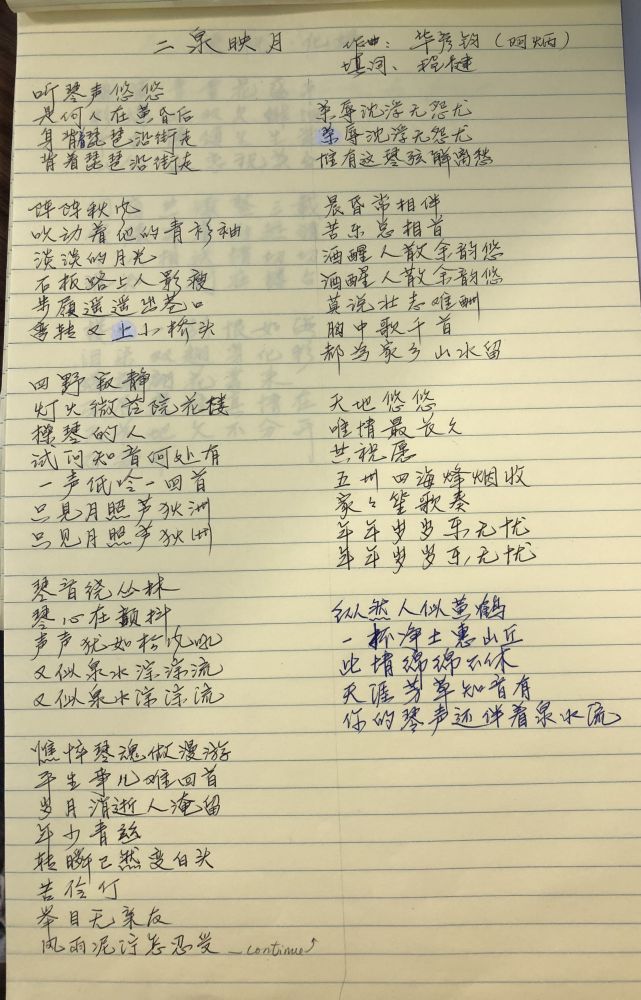 二泉映月
作曲：华彦钧（阿炳）
填词：程健
听琴声悠悠
是何人在黄昏后
身背琵琶沿街走
背着琵琶沿街走
阵阵秋风
吹动着他的青衫袖
淡淡的月光
石板路上人影瘦
步履遥遥出巷口
弯转又上小桥头
四野寂静
灯火微茫院花楼
操琴的人
试问知音何处有
一声低吟一回首
只见月照芦狄洲
只见月照芦狄洲
琴音绕丛林
琴心在颤抖
声声犹如松风吼
又似泉水淙淙流
又似泉水淙淙流
憔悴琴魂做漫游
平生事儿难回首
岁月消逝人淹留
年少青丝
转瞬已然变白头
苦伶仃
举目无亲友
风雨泥泞怎忍受 — continue
荣辱沈浮无怨尤
荣辱沈浮无怨尤
惟有这琴弦解离愁
晨昏常相伴
苦乐总相首
酒醒人散余韵悠
酒醒人散余韵悠
莫说壮志难酬
胸中歌千首
都为家乡山水留
天地悠悠
唯情最长久
共祝愿
五卅四海烽烟收
家々笙歌奏
年年岁岁乐无忧
年年岁岁乐无忧
纵然人似黄鹤
一抔净土惠山丘
此情绵绵不休
天涯芳草知音有
你的琴声还伴着泉水流